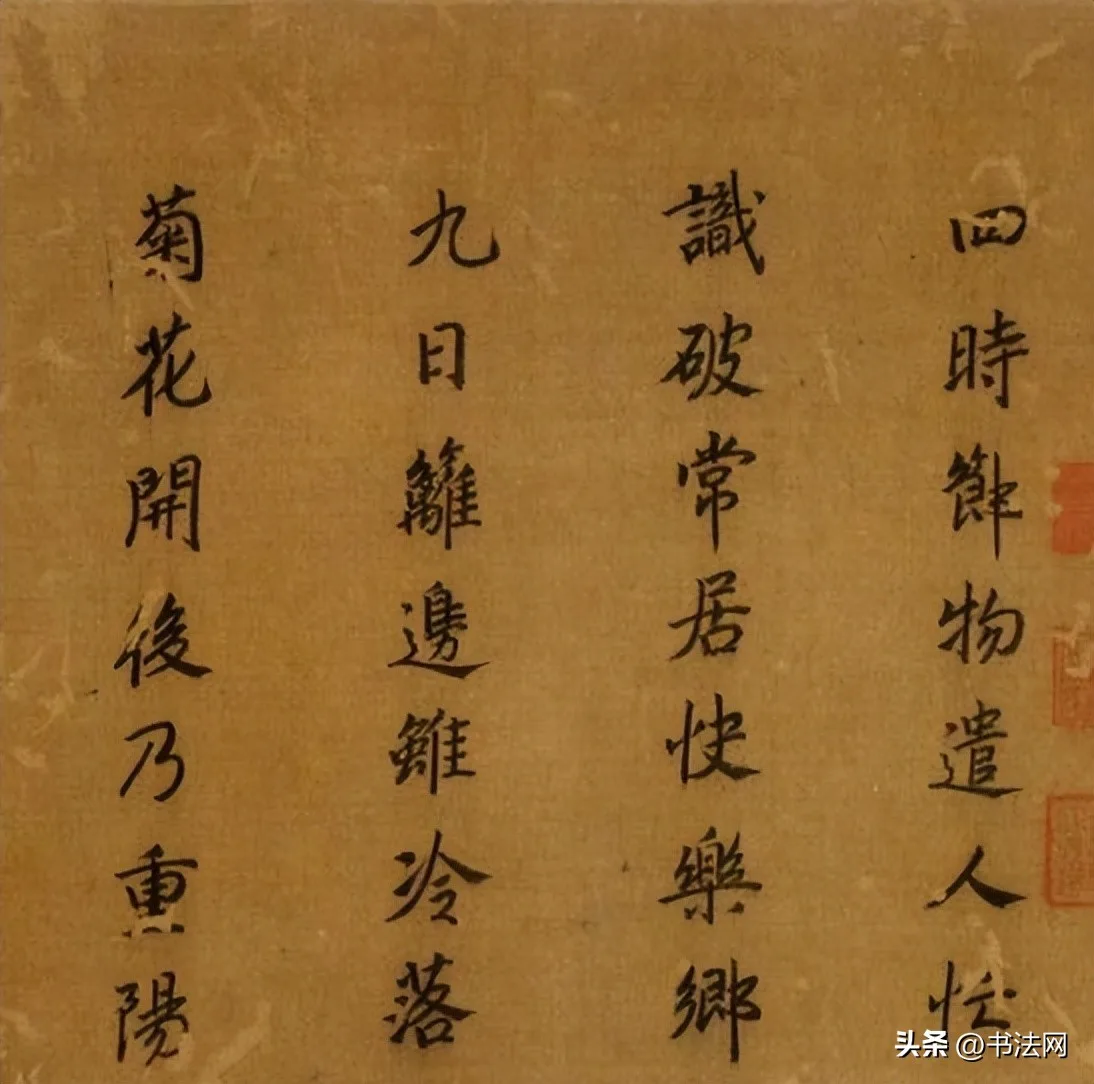 四時節物遣人忙
識破常居快樂鄉
九日籬邊雖冷落
菊花開後乃重陽
头条 @书法网